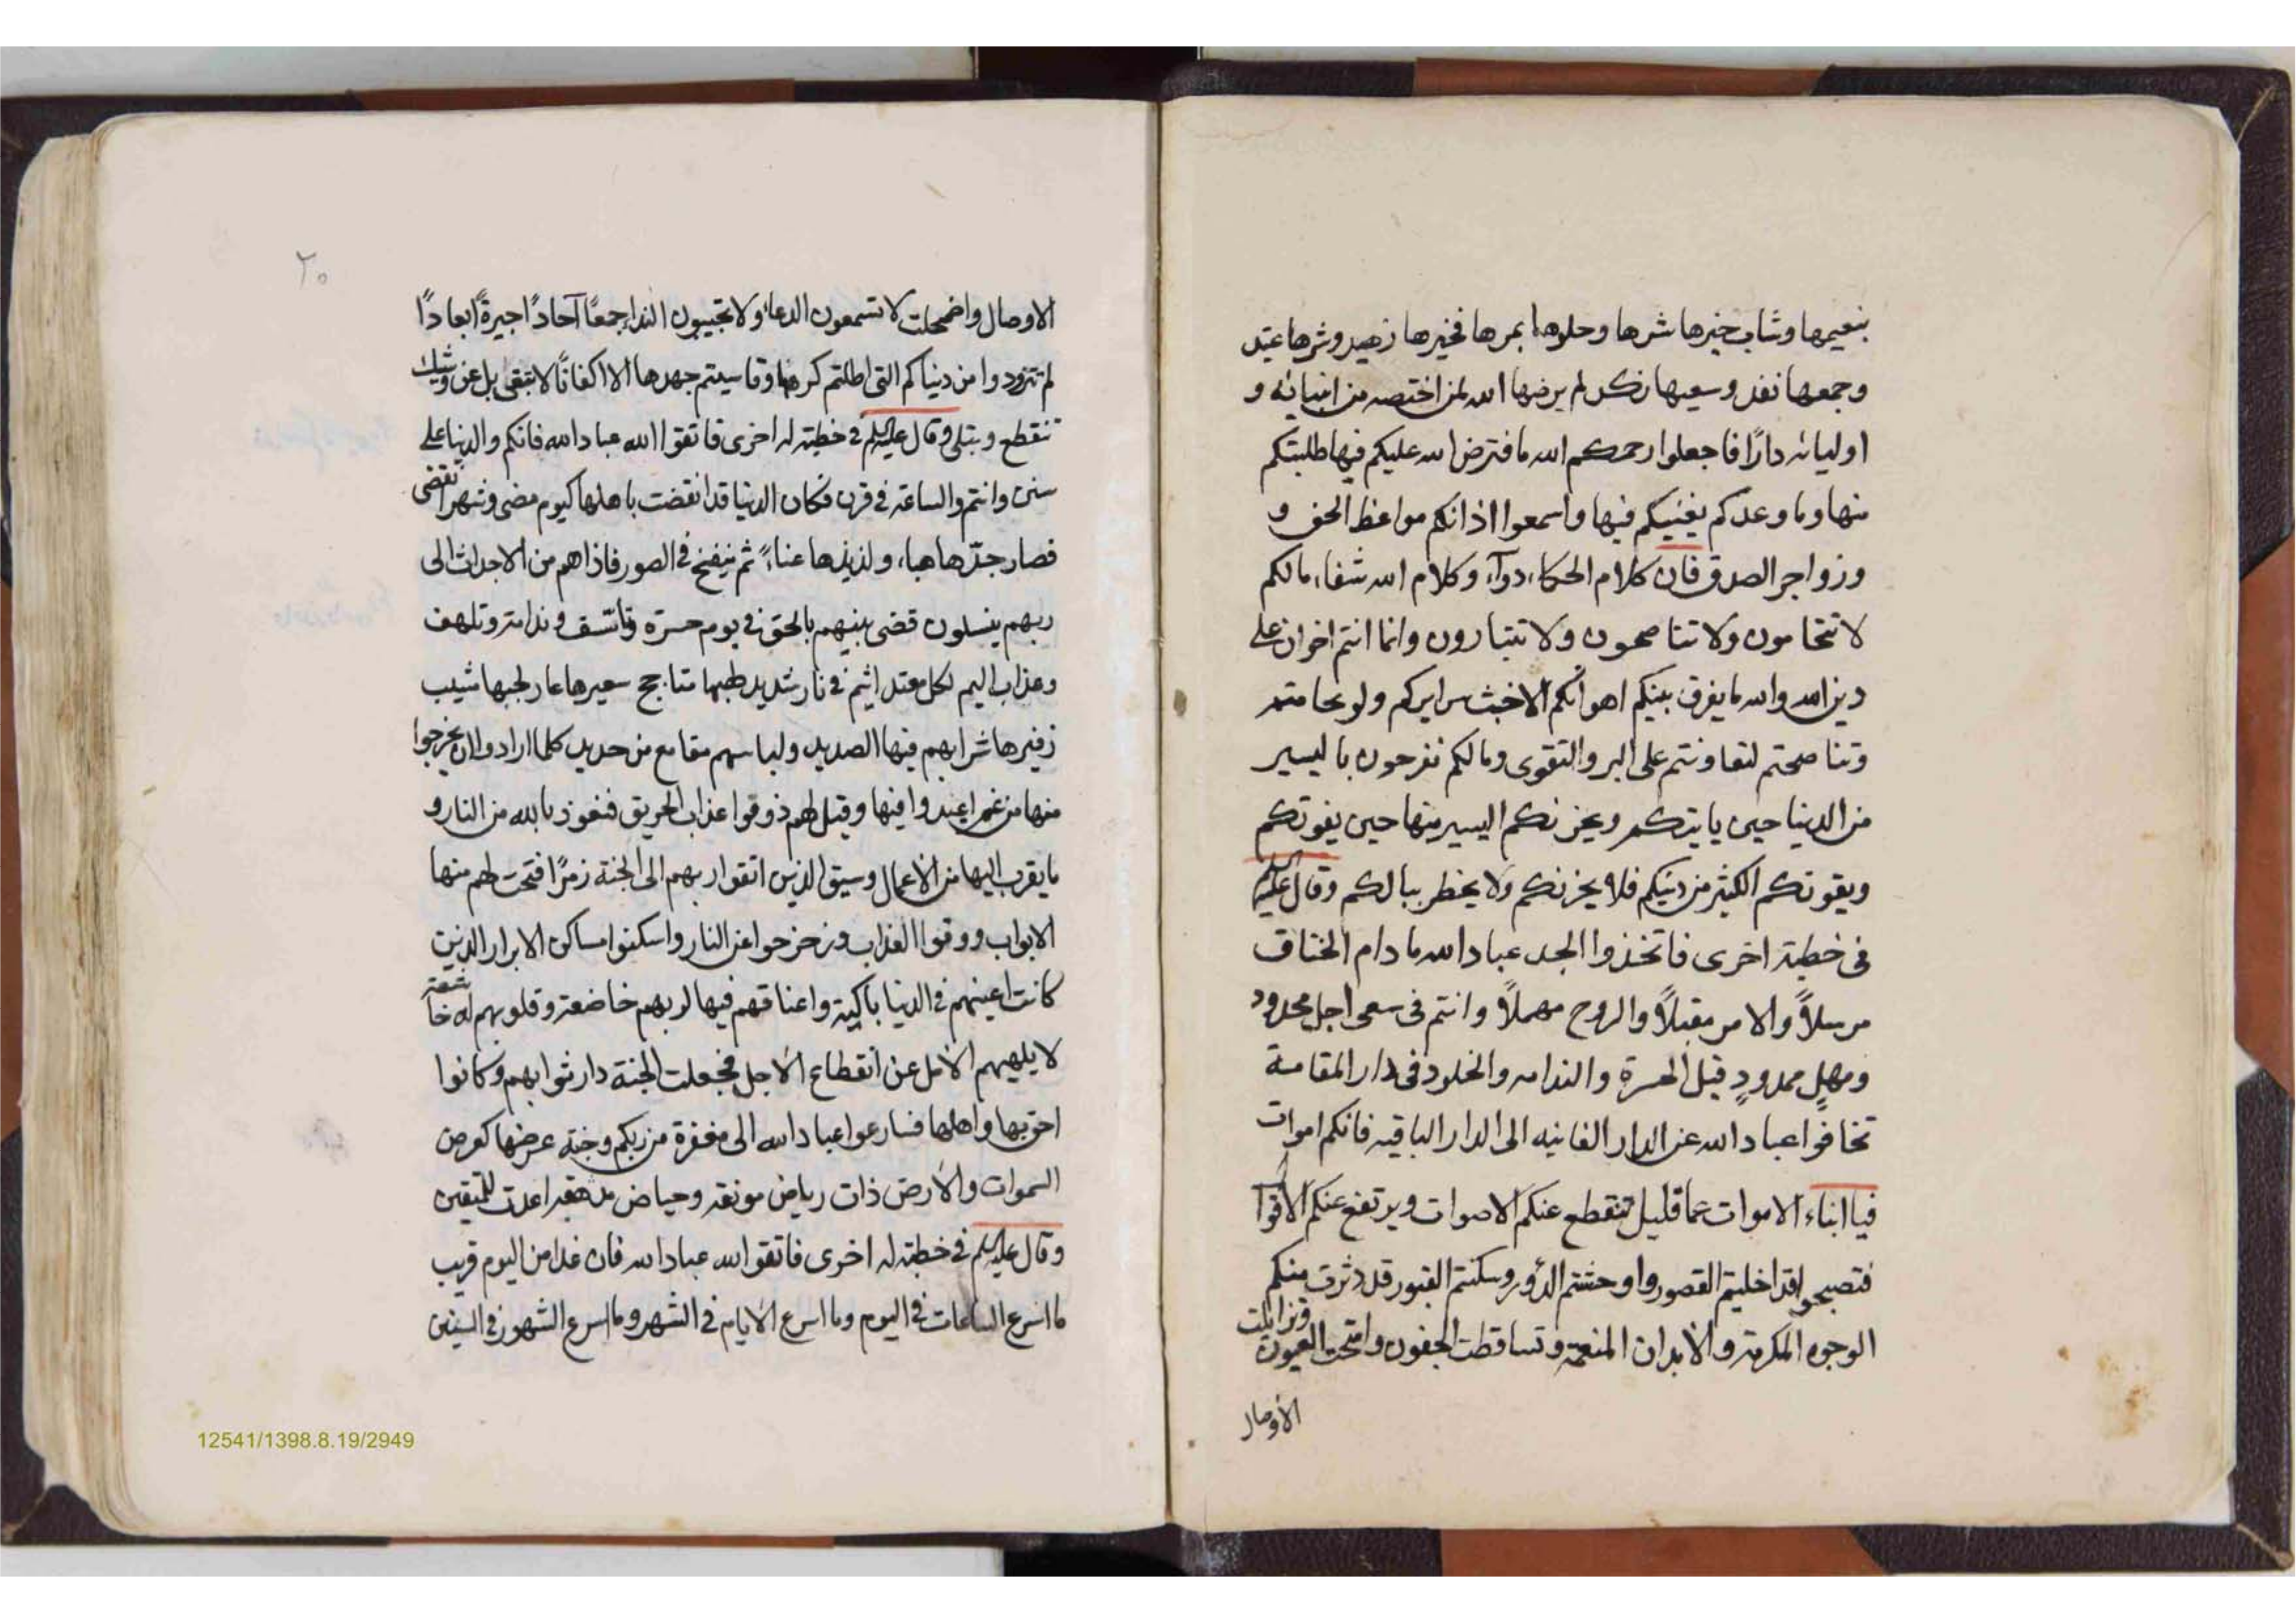 بنعيمها وشاب خيرها شرها وحلوها بمرها فخيرها زهيد وشرها عتيد
وجمعها نفد وسعيها نكد لم يرضها الله لمن اختصه من انبيائه و
اوليائه دارًا فاجعلوا رحمكم الله ما فترض الله عليكم فيها طلبتكم
منها وما وعدكم يغنيكم فيها واسمعوا اذانكم مواعظ الحق و
وزواجر الصدق فان كلام الحكماء دواء وكلام الله شفاء مالكم
لا تتحامون ولا تناصحون ولا تتبارون وانما انتم اخوان على
دين الله والله ما يفرق بينكم اهوائكم الا خبث سرايركم ولو تحامتم
وتناصحتم لتعاونتم على البر والتقوى ومالكم تفرحون باليسير
من الدنيا حين ياتيكم ويحزنكم اليسير منها حين يفوتكم
ويفوتكم الكثير من دينكم فلا يحزنكم ولا يخطر ببالكم وقال عليه
فى خطبة اخرى فاتخذوا الجد عباد الله ما دام الخناق
مرسلاً والامر مقبلاً والروح مهملاً وانتم فى سعى اجل محدود
ومهلٍ ممدودٍ قبل الحسرة والندامه والخلود فى دار المقامة
تخافوا عباد الله عن الدار الفانيه الى الدار الباقيه فانكم اموات
فيا ابناء الاموات عما قليل تنقطع عنكم الاصوات ويرتفع عنكم الاقوا
فتصبحوا قد اخليتم القصور واوحشتم الدور وسكنتم القبور قد دثرت منكم
الوجوه المكرمة والابدان المنعمة وتساقطت الجفون وامتحت العيون وتزايلت
الأوصال
٢٠
الاوصال واضمحلت لا تسمعون الدعاء ولا تجيبون النداء جمعًا آحادًا جيرةً ابعادًا
لم تتزودوا من دنياكم التى اطلتم كرهها وقاسيتم جهدها الا اكفانًا لا تبقى بل عن وشيك
تنقطع وتبلى وقال عليه السلم فى خطبته له اخرى فاتقوا الله عباد الله فانكم والدنيا على
سنن وانتم والساعة فى قرن فكان الدنيا قد انقضت باهلها كيوم مضى وشهر انقضى
فصار جدّها هباء ولذيذها عناء ثم ينفخ فى الصور فاذا هم من الاجداث الى
ربهم ينسلون قضى بينهم بالحق فى يوم حسرة وتاسف وندامة وتلهف
وعذاب اليم لكل معتد اثيم فى نار شديد لهبها متاجج سعيرها عار لجبها شيب
زفيرها شرابهم فيها الصديد ولباسهم مقامع من حديد كلما ارادوا ان يخرجوا
منها من غم اعيدوا فيها وقيل لهم ذوقوا عذاب الحريق فنعوذ بالله من النار و
ما يقرب اليها من الاعمال وسيق الذين اتقوا ربهم الى الجنة زمرًا فتحت لهم منها
الابواب ووقوا العذاب وزحزحوا عن النار واسكنوا مساكن الابرار الذين
كانت اعينهم فى الدنيا باكية واعناقهم فيها لربهم خاضعة وقلوبهم له خاشعة
لا يلهيهم الامل عن انقطاع الاجل فجعلت الجنة دار ثوابهم وكانوا
احق بها واهلها فسارعوا عباد الله الى مغفرة من ربكم وجنة عرضها كعرض
السموات والارض ذات رياض مونقة وحياض مدهقه اعدت للمتقين
وقال عليه السلم فى خطبته له اخرى فاتقوا الله عباد الله فان غدا من اليوم قريب
ما اسرع الساعات فى اليوم وما اسرع الايام فى الشهر وما اسرع الشهور فى السنين
12541/1398.8.19/2949